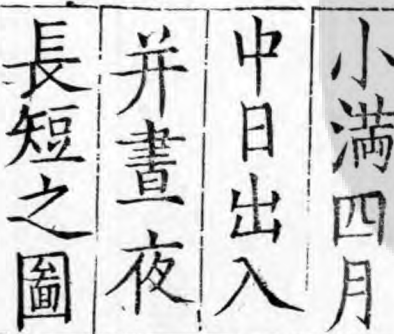 小滿四月
中日出入
并晝夜
長短之圖